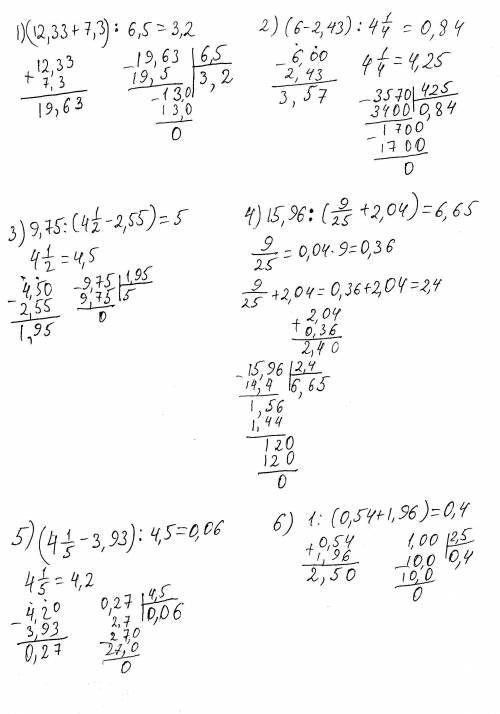 1) (12,33 + 7,3) : 6,5 = 3,2
+ 12,33
7,3
19,63
- 19,63 | 6,5
19,5 | 3,2
- 13,0
13,0
0
2) (6 - 2,43) : 4 1/4 = 0,84
- 6,00
2,43
3,57
4 1/4 = 4,25
- 3570 | 425
3400 | 0,84
- 1700
1700
0
3) 9,75 : (4 1/2 - 2,55) = 5
4 1/2 = 4,5
- 4,50
2,55
1,95
- 9,75 | 1,95
9,75 | 5
0
4) 15,96 : (9/25 + 2,04) = 6,65
9/25 = 0,04 · 9 = 0,36
9/25 + 2,04 = 0,36 + 2,04 = 2,4
+ 2,04
0,36
2,40
- 15,96 | 2,4
14,4 | 6,65
1,56
1,44
120
120
0
5) (4 1/5 - 3,93) : 4,5 = 0,06
4 1/5 = 4,2
- 4,20
3,93
0,27
0,27 | 4,5
2,7 | 0,06
- 27,0
27,0
0
6) 1 : (0,54 + 1,96) = 0,4
+ 0,54
1,96
2,50
1,00 | 2,5
- 10,0 | 0,4
10,0
0